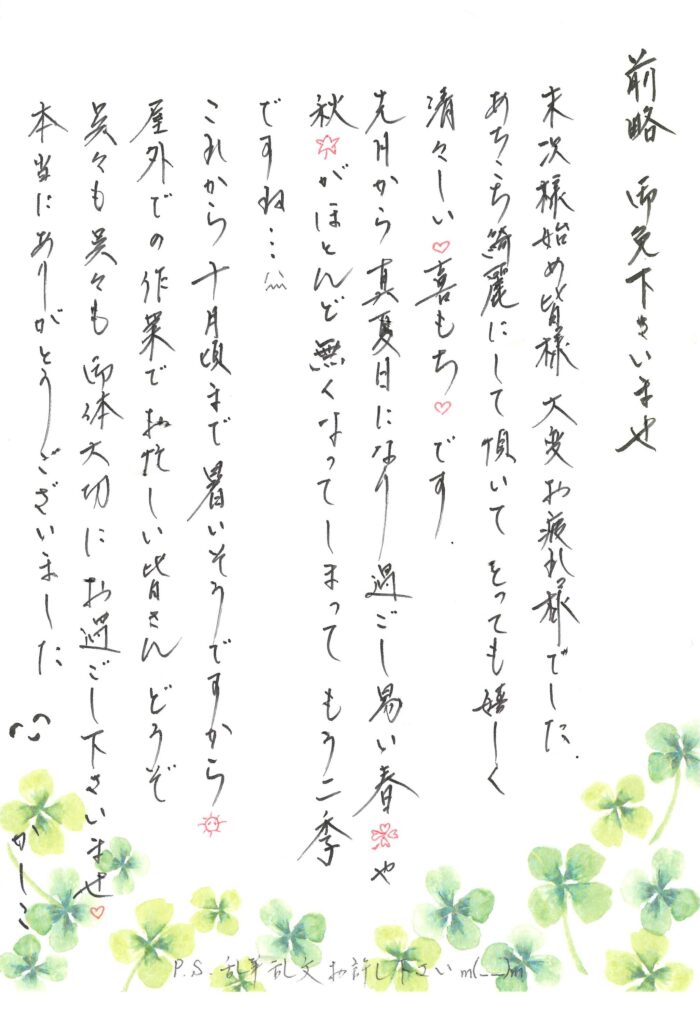 前略 御免下さいませ
末次様始め皆様 大変お疲れ様でした.
あちこち綺麗にして頂いて とっても嬉しく
清々しい♡喜もち♡です.
先月から真夏日になり 過ごし易い春や
秋がほとんど無くなってしまって もう二季
ですね…
これから十月頃まで暑いそうですから
屋外での作業でお忙しい皆さん どうぞ
呉々も呉々も御体大切にお過ごし下さいませ♡
本当にありがとうございました
かしこ
P.S. 乱筆乱文お許し下さいm(__)m